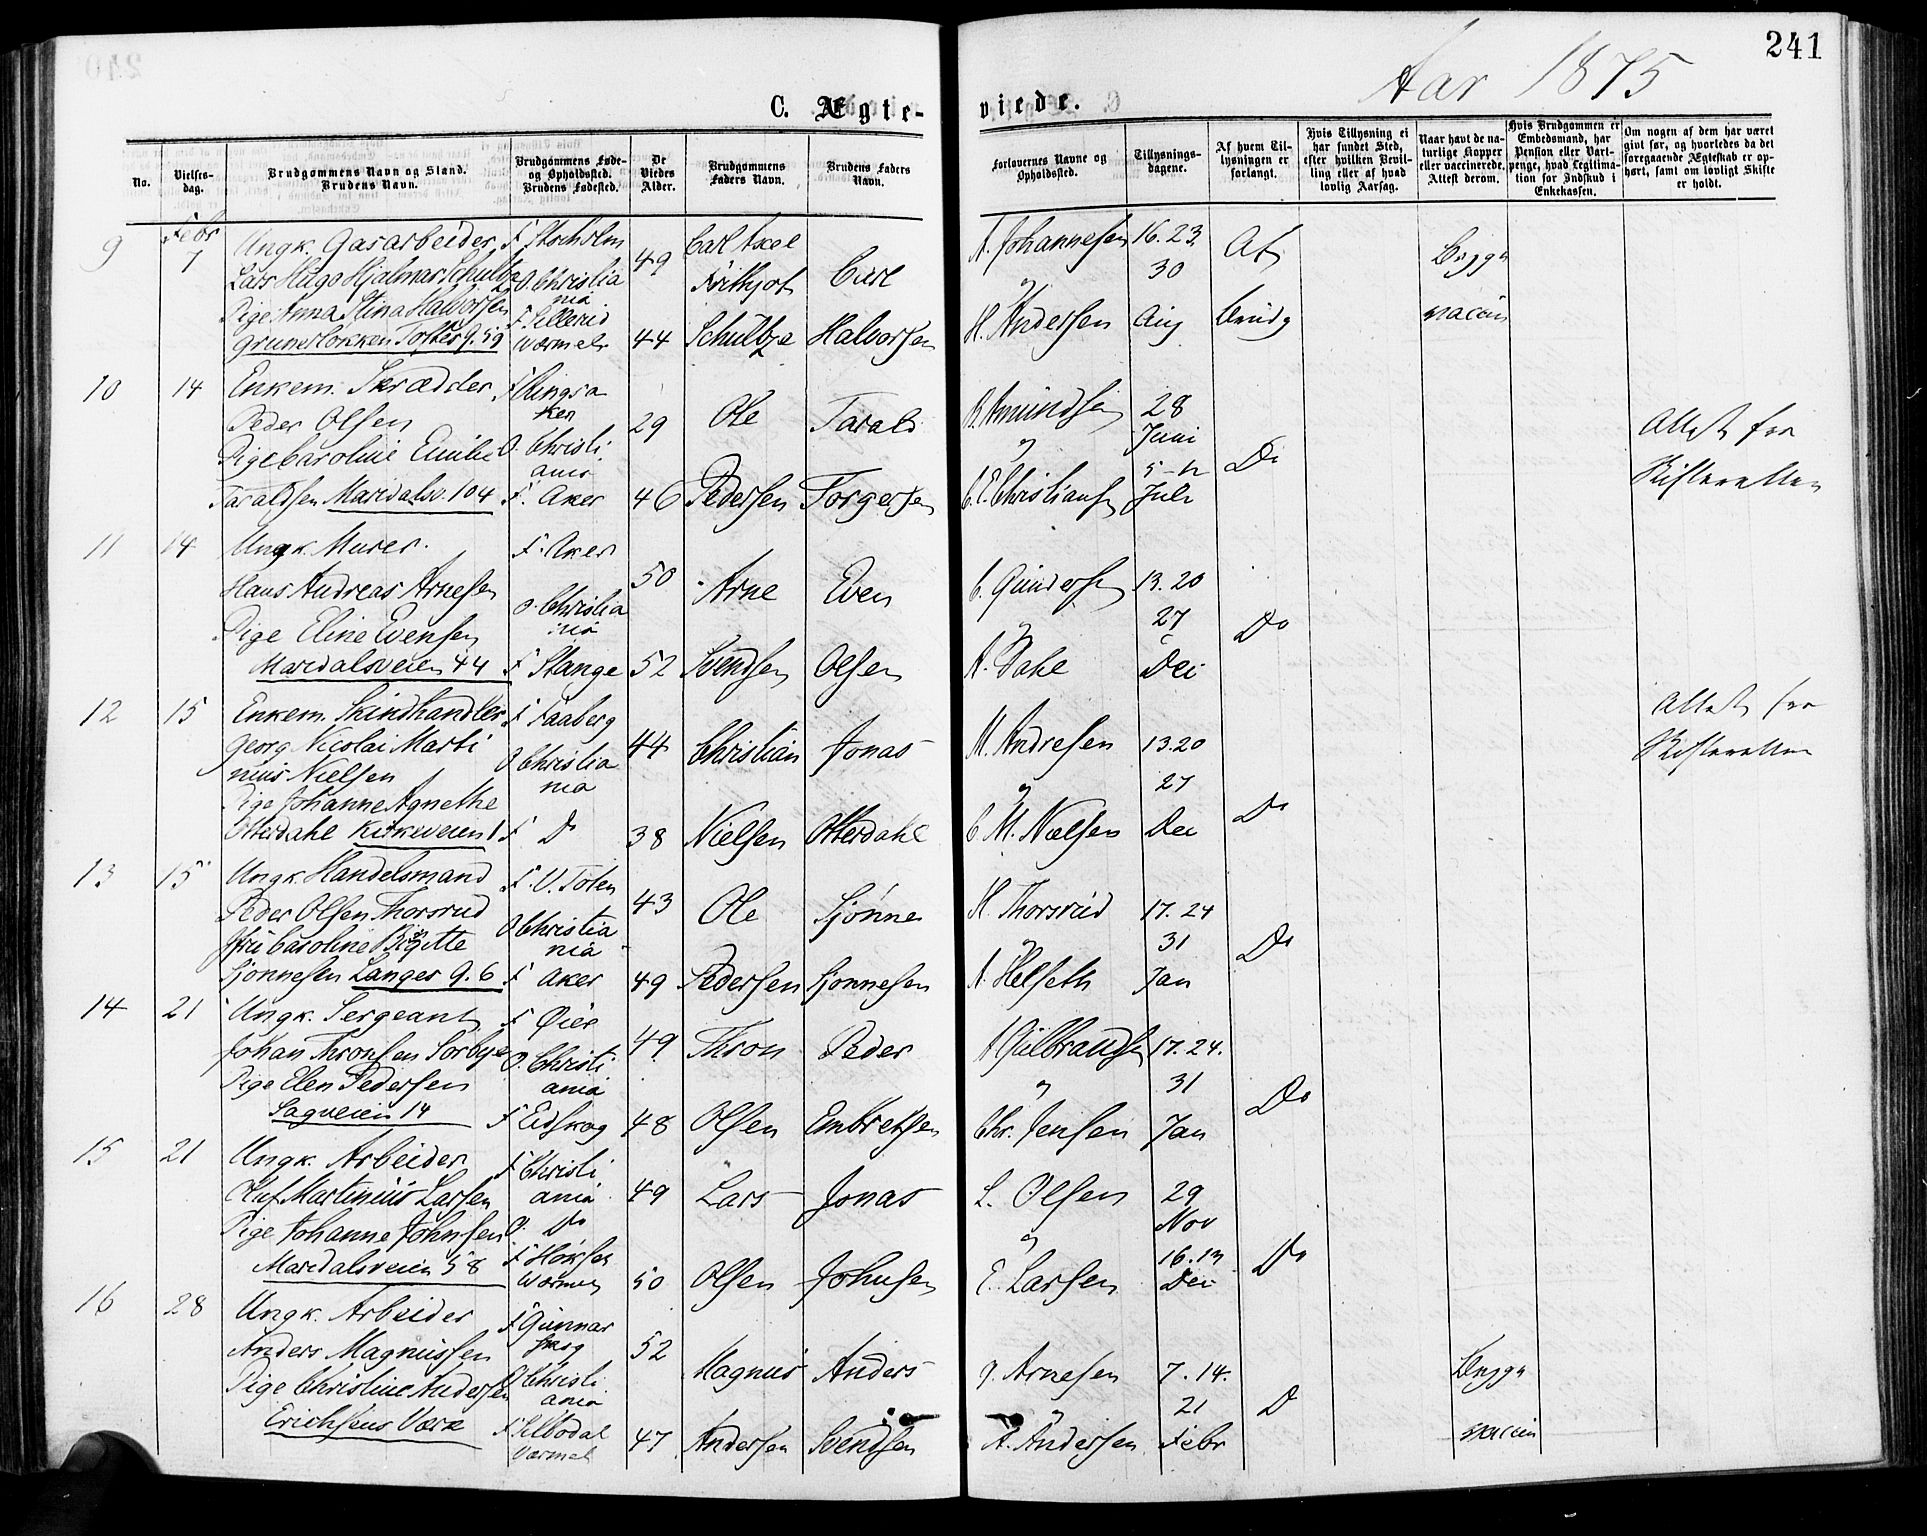 241
Aar 1875
C. Ægte-
viede.
No.
Vielses-
dag.
Brudgommens Navn og Stand.
Brudens Navn.
Brudgommens Føde-
og Opholdssted.
Brudens Fødested.
De
Viedes
Alder.
Brudgommens
Faders Navn.
Brudens Faders
Navn.
Forlovernes Navne og
Opholdssted.
Tillysnings-
dagene.
Af hvem Til-
lysningen er
forlangt.
Hvis Tillysning ei
har fundet Sted,
efter hvilken Bevil-
ling eller af hvad
lovlig Aarsag.
Naar havt de na-
turlige Kopper
eller vaccinerede.
Attest derom.
Hvis Brudgommen er
Embedsmand, har
Pension eller Vart-
penge, hvad Legitima-
tion for Indskud i
Enkekassen.
Om nogen af dem har været
givt før, og hvorledes da det
foregaaende Ægteskab er op-
hørt, samt om lovligt Skifte
er holdt.
9
Febr
7
Ungk. Gasarbeider
Lars Hugo Hjalmar Schultze
Pige Anna Stina Halvorsen
Grünerløkken Toftes g. 59
F Stockholm
O. Christia
nia
F Sillerud
Wermel.
49
44
Carl Axel
Frithjof
Schultze
Carl
Halvorsen
A. Johannesen
og
H. Andersen
16. 23
30
Aug
Af
Brudg
Begge
vaccin
10
14
Enkem. Skrædder
Peder Olsen
Pige Caroline Emilie
Taraldsen Maridalsv. 104
F Ringsa
ker
O. Christi
ania
F. Aker
29
46
Ole
Pedersen
Tarald
Torgersen
B. Amundsen
og
C. E. Christiansen
28
Juni
5-12
Juli
Do
Attest fra
Skifteretten
11
14
Ungk. Murer.
Hans Andreas Arnesen
Pige Eline Evensen
Maridalsveien 44
F. Aker
O. Christia
nia
F Stange
50
52
Arne
Svendsen
Even
Olsen
C. Gundersen
og
A. Dahl
13. 20
27
Dec
Do
12
15
Enkem. Skindhandler
Georg Nicolai Marti
nius Nielsen
Pige Johanne Agnethe
Otterdahl Kirkeveien 1
F Faaberg
O Christia
nia
F Do
44
38
Christian
Nielsen
Jonas
Otterdahl
M. Andresen
og
C. M. Nielsen
13. 20
27
Dec
Do
Attest fra
Skifteretten
13
15
Ungk. Handelsmand
Peder Olsen Thorsrud
Jfr Caroline Birgitte
Sjønnesen Langes g. 6
F. V. Toten
O Christia
nia
F Aker
43
49
Ole
Pedersen
Sjønne
Sjonnesen
H. Thorsrud
og
A. Helseth
17. 24
31
Jan
Do
14
21
Ungk. Sergeant
Johan Thronsen Sorbye
Pige Elen Pedersen
Sagveien 14
F Øier
O. Christi
ania
F Eidskog
49
48
Thron
Olsen
Peder
Embretsen
A Gulbrandsen
og
Chr. Jensen
17. 24.
31
Jan
Do
15
21
Ungk. Arbeider
Oluf Martinius Larsen
Pige Johanne Johnsen
Maridalsveien 58
F Christi
ania
O. Do
49
50
Lars
Olsen
Jonas
Johnsen
L. Olsen
og
E. Larsen
29
Nov
Dec
Do
16
28
Ungk. Arbeider
Anders Magnussen
Pige Christine Andersen
Erichsens Værk
F Gunnar
skog
O Christi
ania
F Silbodal
Værmel
52
47
Magnus
Andersen
Anders
Svendsen
G. Arnesen
og
A. Andersen
7. 14.
21
Febr
D
Begge
vaccin